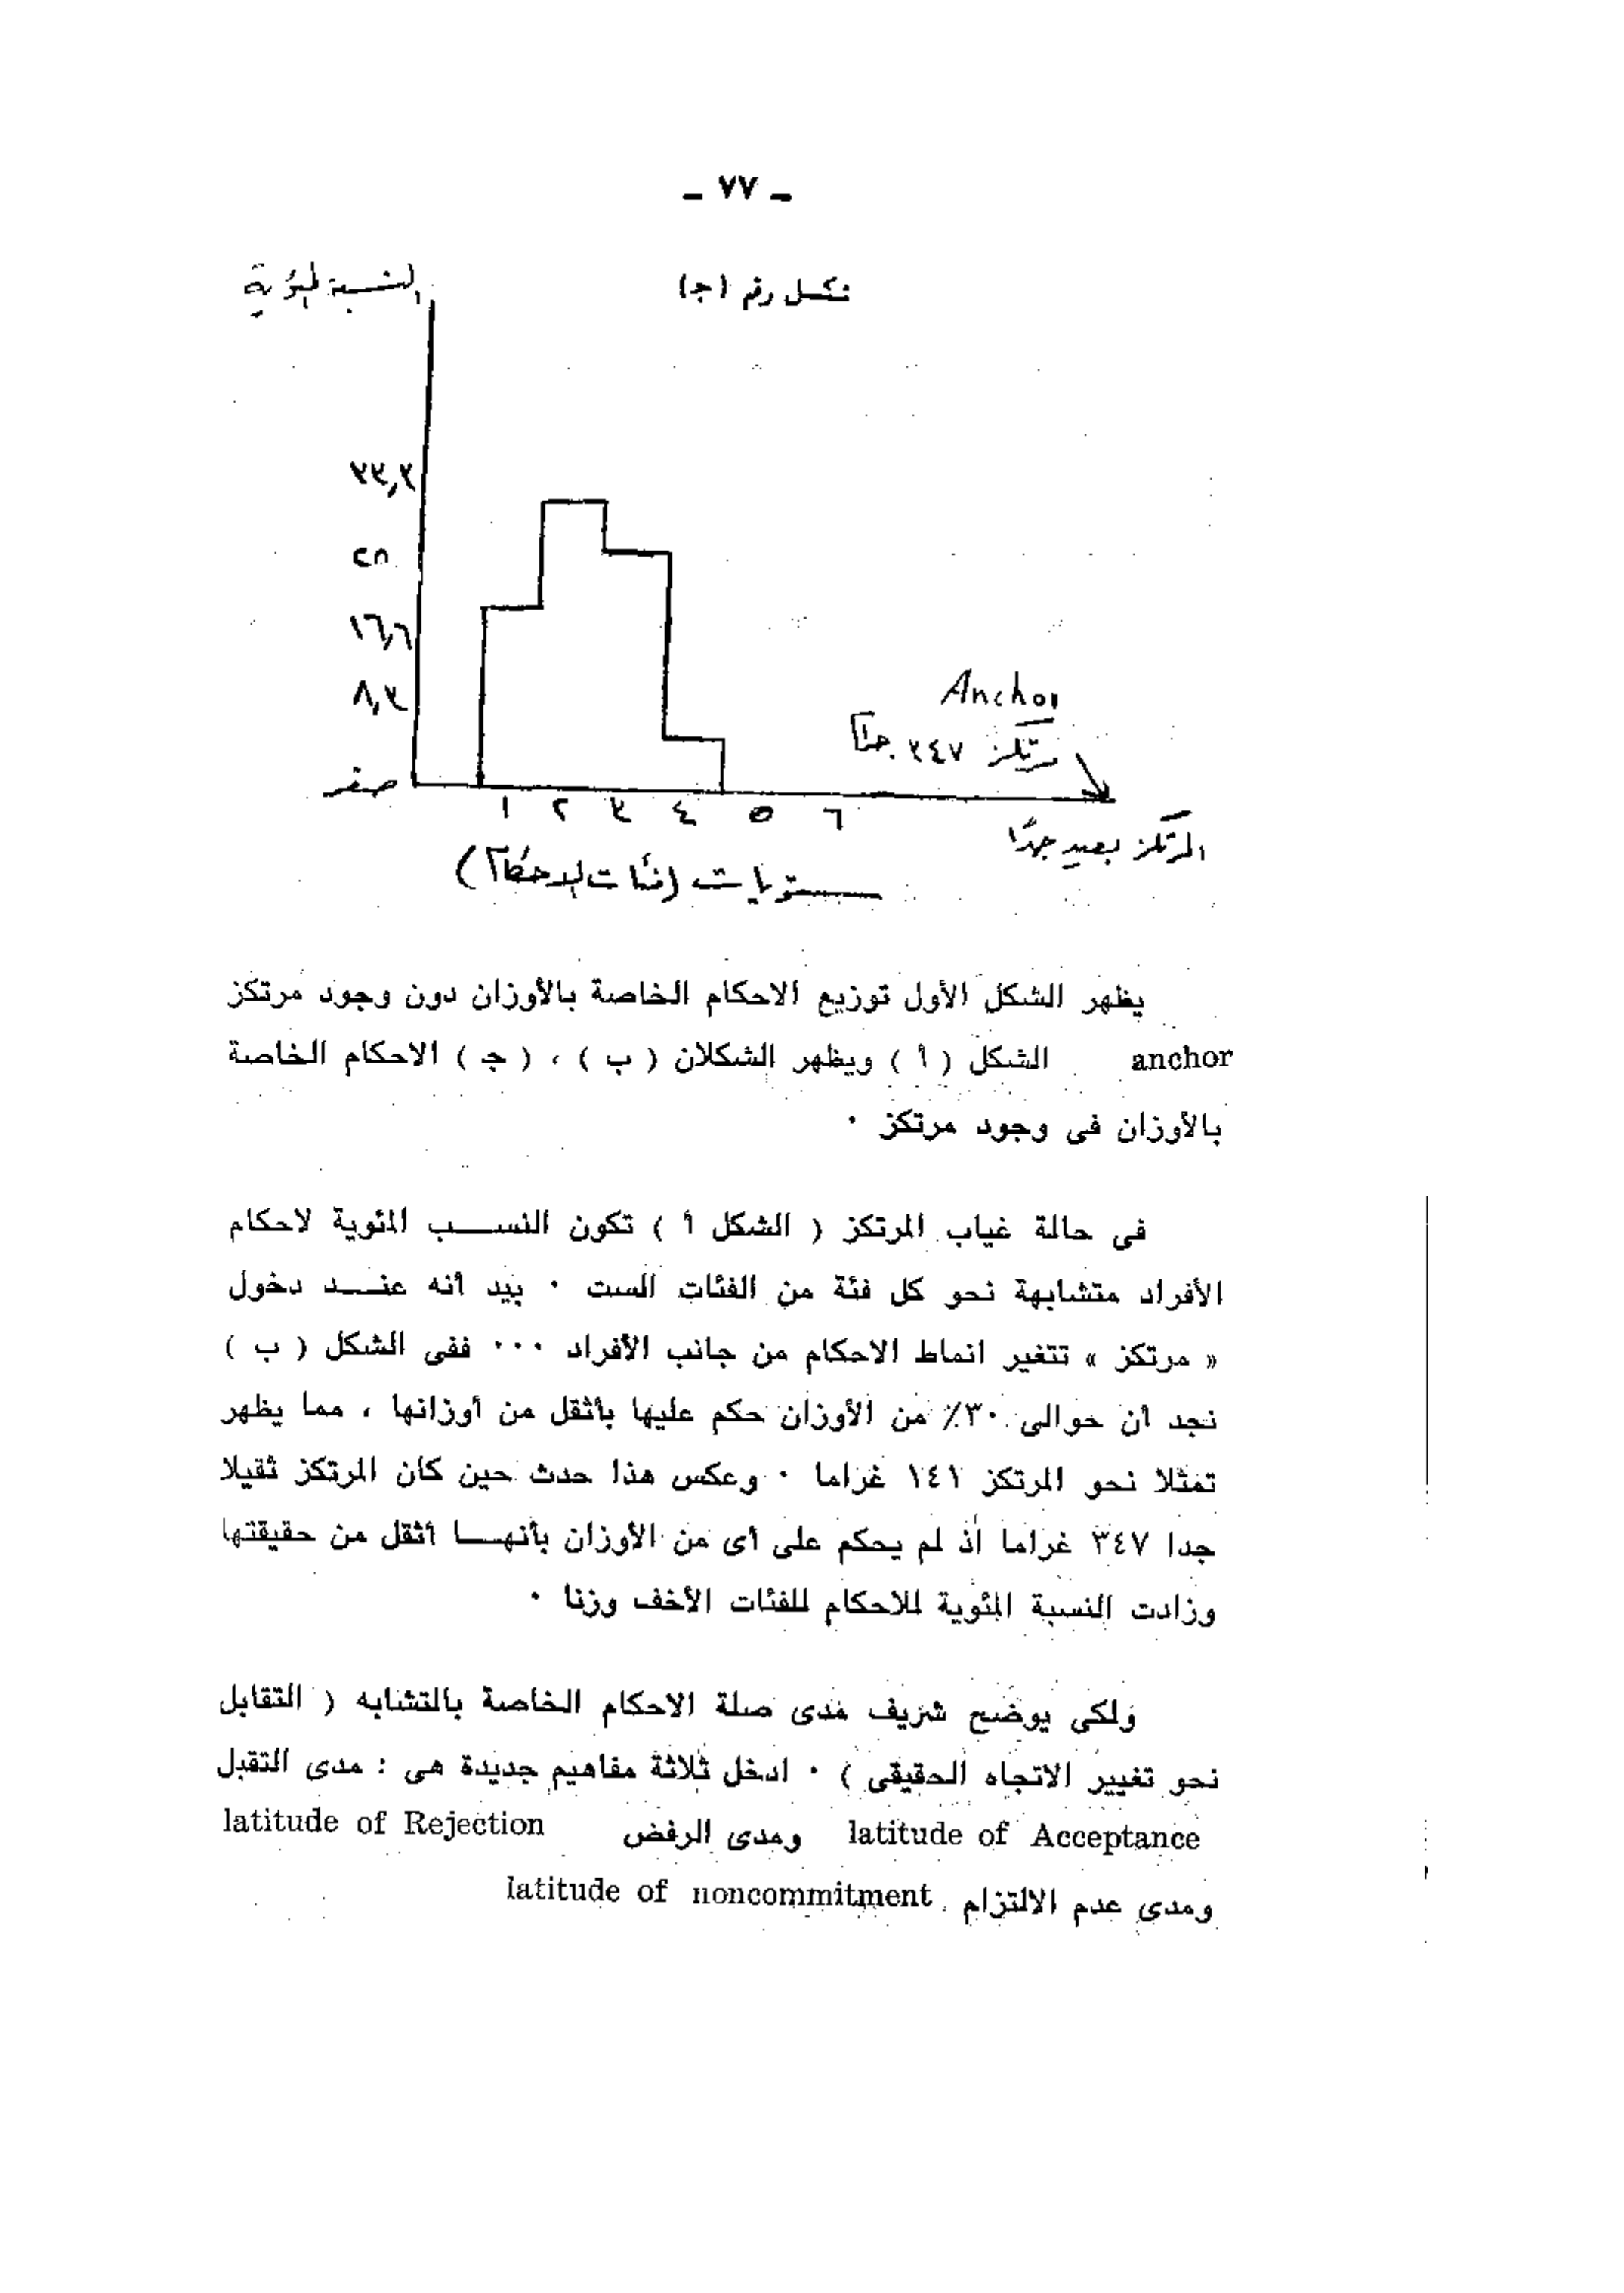 ـ ٧٧ ـ
شكل رقم (جـ)
النسبة المئوية
٣٣,٣
٢٥
١٦,٦
٨,٣
صفر
Anchor
مرتكز ٣٤٧ جراماً
١ ٢ ٣ ٤ ٥ ٦
المرتكز بعيد جدًا
مستويات (فئات الاحكام)
يظهر الشكل الأول توزيع الاحكام الخاصة بالأوزان دون وجود مرتكز
anchor الشكل ( أ ) ويظهر الشكلان ( ب ) ، ( جـ ) الاحكام الخاصة
بالأوزان فى وجود مرتكز ٠
فى حالة غياب المرتكز ( الشكل أ ) تكون النســـب المئوية لاحكام
الأفراد متشابهة نحو كل فئة من الفئات الست ٠ بيد أنه عنـــد دخول
« مرتكز » تتغير انماط الاحكام من جانب الأفراد ٠٠٠ ففى الشكل ( ب )
نجد أن حوالى ٣٠٪ من الأوزان حكم عليها بأثقل من أوزانها ، مما يظهر
تمثلا نحو المرتكز ١٤١ غراما ٠ وعكس هذا حدث حين كان المرتكز ثقيلا
جدا ٣٤٧ غراما اذ لم يحكم على أى من الأوزان بأنهـــا أثقل من حقيقتها
وزادت النسبة المئوية للاحكام للفئات الأخف وزنا ٠
ولكى يوضح شريف مدى صلة الاحكام الخاصة بالتشابه ( التقابل
نحو تغيير الاتجاه الحقيقى ) ٠ ادخل ثلاثة مفاهيم جديدة هى : مدى التقبل
latitude of Acceptance ومدى الرفض latitude of Rejection
ومدى عدم الالتزام latitude of noncommitment